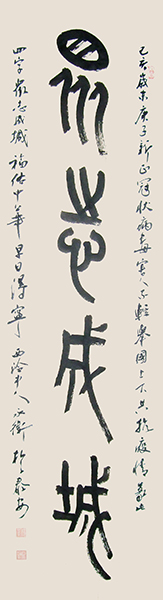 众志成城
己亥岁末庚子新正冠状病毒害人不轻举国上下共抗疫情兹以
四字众志成城福佑中华早日得宁西泠中人